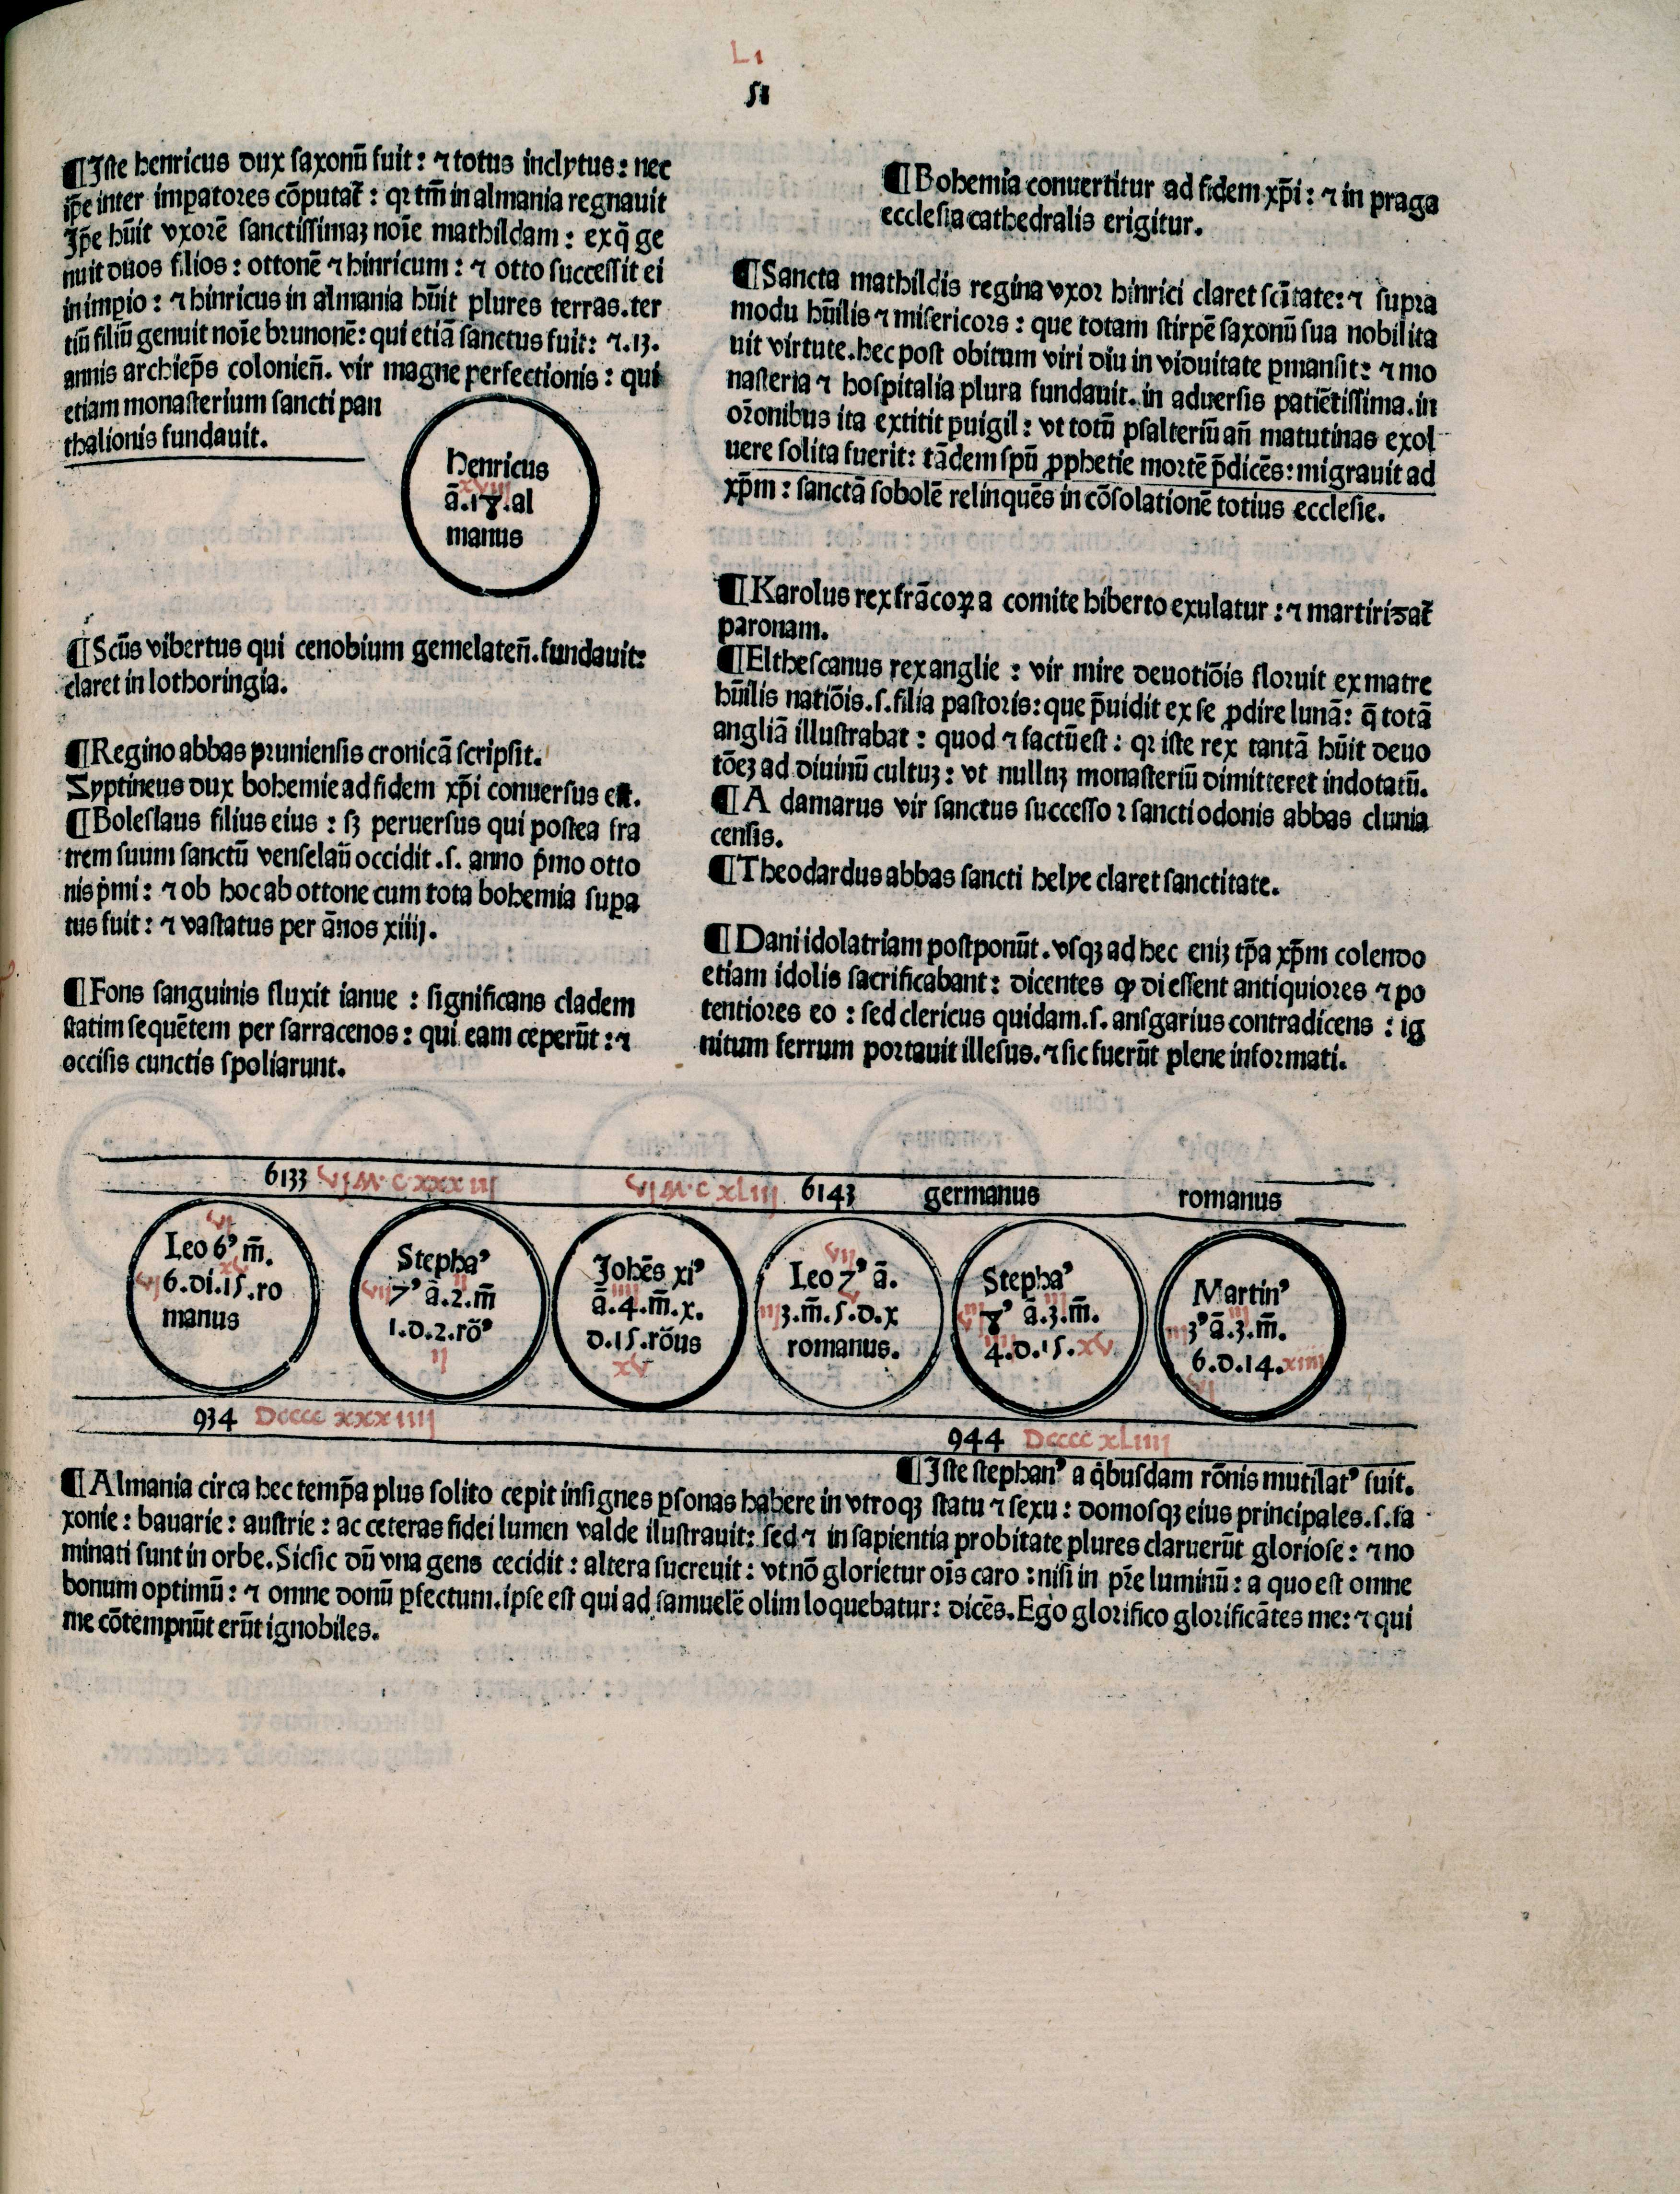 L1
51
¶Iste henricus dux saxonū fuit: ⁊ totus inclytus: nec
ip̄e inter imꝑatores cōputat᷑: qꝛ tm̄ in almania regnauit
Ip̄e hūit vxorē sanctissimaꝫ noīe mathildam: ex q̄ ge
nuit duos filios: ottonē ⁊ hinricum: ⁊ otto successit ei
in imꝑio: ⁊ hinricus in almania hūit plures terras. ter
tiū filiū genuit noīe brunonē: qui etiā sanctus fuit: ⁊.13.
annis archiep̄s colonien̄. vir magne perfectionis: qui
etiam monasterium sancti pan
thalionis fundauit.
henricus
xviii
ā.18.al
manus
¶Scūs vibertus qui cenobium gemelaten̄. fundauit:
claret in lothoringia.
¶Regino abbas pruniensis cronicā scripsit.
Zyptineus dux bohemie ad fidem xp̄i conuersus est.
¶Boleslaus filius eius: sꝫ peruersus qui postea fra
trem suum sanctū venselaū occidit .s. anno p̄mo otto
nis p̄mi: ⁊ ob hoc ab ottone cum tota bohemia suꝑa
tus fuit: ⁊ vastatus per ānos xiiij.
¶Fons sanguinis fluxit ianue: significans cladem
statim sequētem per sarracenos: qui eam ceperūt: ⁊
occisis cunctis spoliarunt.
¶Bohemia conuertitur ad fidem xp̄i: ⁊ in praga
ecclesia cathedralis erigitur.
¶Sancta mathildis regina vxor hinrici claret scītate: ⁊ supra
modu hūilis ⁊ misericors: que totam stirpē saxonū sua nobilita
uit virtute. hec post obitum viri diu in viduitate ꝑmansit: ⁊ mo
nasteria ⁊ hospitalia plura fundauit. in aduersis patiētissima. in
or̄onibus ita extitit ꝑuigil: vt totū psalteriū an̄ matutinas exol
uere solita fuerit: tādem spū ꝓphetie mortē p̄dicēs: migrauit ad
xp̄m: sanctā sobolē relinquēs in cōsolationē totius ecclesie.
¶Karolus rex frācoꝝ a comite hiberto exulatur: ⁊ martirizat᷑
paronam.
¶Elthescanus rex anglie: vir mire deuotiōis floruit ex matre
hūilis natiōis .s. filia pastoris: que p̄uidit ex se ꝓdire lunā: q̄ totā
angliā illustrabat: quod ⁊ factū est: qꝛ iste rex tantā hūit deuo
tōeꝫ ad diuinū cultuꝫ: vt nulluꝫ monasteriū dimitteret indotatū.
¶A damarus vir sanctus successor sancti odonis abbas clunia
censis.
¶Theodardus abbas sancti helye claret sanctitate.
¶Dani idolatriam postponūt. vsqꝫ ad hec eniꝫ tp̄a xp̄m colendo
etiam idolis sacrificabant: dicentes ꝙ di essent antiquiores ⁊ po
tentiores eo: sed clericus quidam .s. ansgarius contradicens: ig
nitum ferrum portauit illesus. ⁊ sic fuerūt plene informati.
6133 VI M·C xxxiii VI M·C xLiii 6143 germanus romanus
VI
Leo 6ꝰ m̄.
xv
VI 6.di.15.ro
manus
Stephaꝰ
VII 7ꝰ ā.2.m̄
1.d.2.rōꝰ
II
Johēs xiꝰ
IIII
ā.4.m̄.x.
d.15.rōus
xv
VII
Leo 7ꝰ ā.
III 3.m̄.5.d.x
romanus.
Stephaꝰ
8ꝰ ā.3.m̄.
4.d.15.xv
Martinꝰ
III 3ꝰ ā.3.m̄.
6.d.14.xiiii
VI
934 Dcccc xxxiiii
944 Dcccc xLiiii
¶Iste stephanꝰ a qbusdam rōnis mutilatꝰ fuit.
¶Almania circa hec temp̄a plus solito cepit insignes ꝑsonas habere in vtroqꝫ statu ⁊ sexu: domosqꝫ eius principales .s. sa
xonie: bauarie: austrie: ac ceteras fidei lumen valde ilustrauit: sed ⁊ in sapientia probitate plures claruerūt gloriose: ⁊ no
minati sunt in orbe. Sicsic dū vna gens cecidit: altera sucreuit: vt nō glorietur oīs caro: nisi in pr̄e luminū: a quo est omne
bonum optimū: ⁊ omne donū ꝑfectum. ipse est qui ad samuelē olim loquebatur: dicēs. Ego glorifico glorificātes me: ⁊ qui
me cōtempnūt erūt ignobiles.